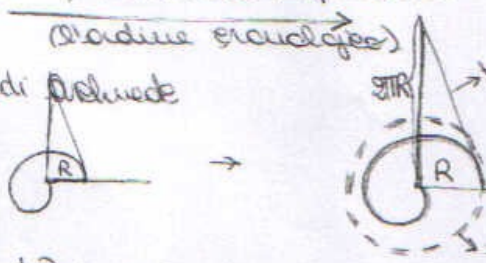 (l'ordine cronologico)
di Archimede
2πR
R
R